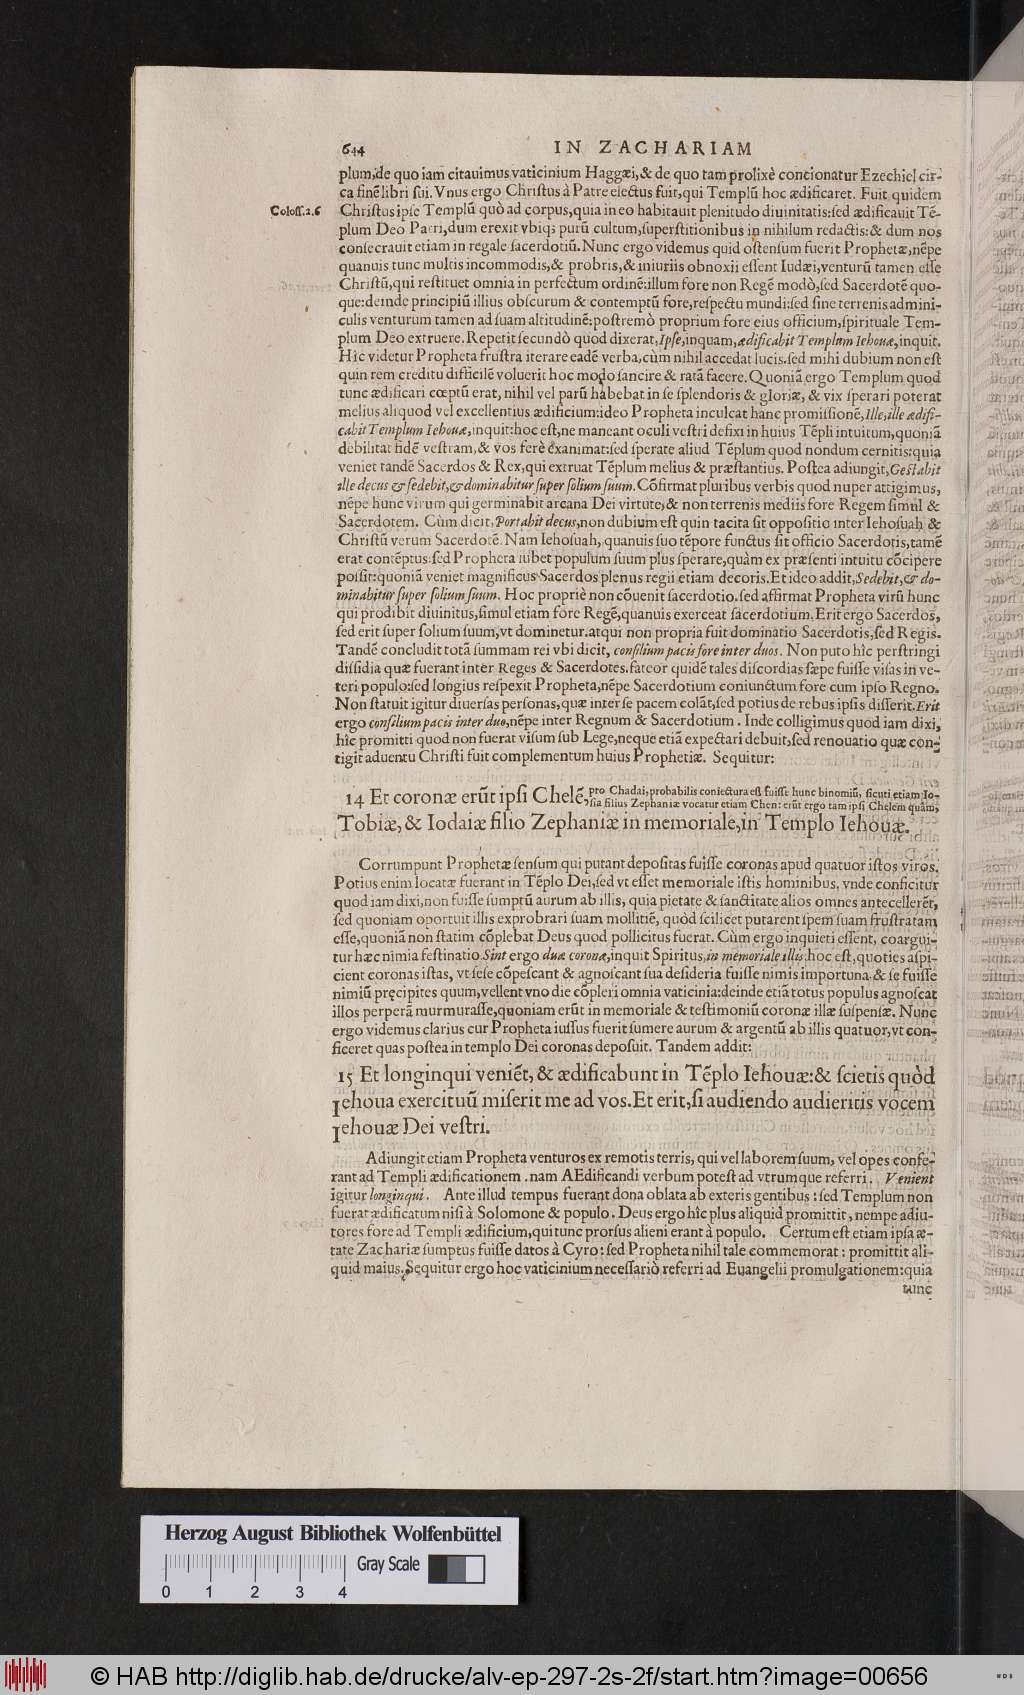 644 IN ZACHARIAM
plum, de quo iam citauimus vaticinium Haggæi, & de quo tam prolixè concionatur Ezechiel cir-
ca finē libri sui. Vnus ergo Christus à Patre electus fuit, qui Templū hoc ædificaret. Fuit quidem
Coloss. 2. 6
Christus ipse Templū quò ad corpus, quia in eo habitauit plenitudo diuinitatis: sed ædificauit Tē-
plum Deo Patri, dum erexit vbiq; purū cultum, superstitionibus in nihilum redactis: & dum nos
consecrauit etiam in regale sacerdotiū. Nunc ergo videmus quid ostensum fuerit Prophetæ, nēpe
quanuis tunc multis incommodis, & probris, & iniuriis obnoxii essent Iudæi, venturū tamen esse
Christū, qui restituet omnia in perfectum ordinē: illum fore non Regē modò, sed Sacerdotē quo-
que: deinde principiū illius obscurum & contemptū fore, respectu mundi: sed sine terrenis admini-
culis venturum tamen ad suam altitudinē: postremò proprium fore eius officium, spirituale Tem-
plum Deo extruere. Repetit secundò quod dixerat, Ipse, inquam, ædificabit Templum Iehouæ, inquit.
Hîc videtur Propheta frustra iterare eadē verba, cùm nihil accedat lucis. sed mihi dubium non est
quin rem creditu difficilē voluerit hoc modo sancire & ratā facere. Quoniā ergo Templum quod
tunc ædificari cœptū erat, nihil vel parū habebat in se splendoris & gloriæ, & vix sperari poterat
melius aliquod vel excellentius ædificium: ideo Propheta inculcat hanc promissionē, Ille, ille ædifi-
cabit Templum Iehouæ, inquit: hoc est, ne maneant oculi vestri defixi in huius Tēpli intuitum, quoniā
debilitat fidē vestram, & vos ferè exanimat: sed sperate aliud Tēplum quod nondum cernitis: quia
veniet tandē Sacerdos & Rex, qui extruat Tēplum melius & præstantius. Postea adiungit, Gestabit
ille decus & sedebit, & dominabitur super solium suum. Cōfirmat pluribus verbis quod nuper attigimus,
nēpe hunc virum qui germinabit arcana Dei virtute, & non terrenis mediis fore Regem simul &
Sacerdotem. Cùm dicit, Portabit decus, non dubium est quin tacita sit oppositio inter Iehosuah &
Christū verum Sacerdotē. Nam Iehosuah, quanuis suo tēpore functus sit officio Sacerdotis, tamē
erat contēptus: sed Propheta iubet populum suum plus sperare, quàm ex præsenti intuitu cōcipere
possit: quoniā veniet magnificus Sacerdos plenus regii etiam decoris. Et ideo addit, Sedebit, & do-
minabitur super solium suum. Hoc propriè non cōuenit sacerdotio. sed affirmat Propheta virū hunc
qui prodibit diuinitus, simul etiam fore Regē, quanuis exerceat sacerdotium. Erit ergo Sacerdos,
sed erit super solium suum, vt dominetur. atqui non propria fuit dominatio Sacerdotis, sed Regis.
Tandē concludit totā summam rei vbi dicit, consilium pacis fore inter duos. Non puto hîc perstringi
dissidia quæ fuerant inter Reges & Sacerdotes. fateor quidē tales discordias sæpe fuisse visas in ve-
teri populo: sed longius respexit Propheta, nēpe Sacerdotium coniunctum fore cum ipso Regno.
Non statuit igitur diuersas personas, quæ inter se pacem colāt, sed potius de rebus ipsis disserit. Erit
ergo consilium pacis inter duo, nēpe inter Regnum & Sacerdotium. Inde colligimus quod iam dixi,
hîc promitti quod non fuerat visum sub Lege, neque etiā expectari debuit, sed renouatio quæ con-
tigit aduentu Christi fuit complementum huius Prophetiæ. Sequitur:
14 Et coronæ erūt ipsi Chelē, pro Chadai, probabilis coniectura est fuisse hunc binomiū, sicuti etiam Io-
sia filius Zephaniæ vocatur etiam Chen: erūt ergo tam ipsi Chelem quàm,
Tobiæ, & Iodaiæ filio Zephaniæ in memoriale, in Templo Iehouæ.
Corrumpunt Prophetæ sensum qui putant depositas fuisse coronas apud quatuor istos viros.
Potius enim locatæ fuerant in Tēplo Dei, sed vt esset memoriale istis hominibus, vnde conficitur
quod iam dixi, non fuisse sumptū aurum ab illis, quia pietate & sanctitate alios omnes antecellerēt,
sed quoniam oportuit illis exprobrari suam mollitiē, quòd scilicet putarent spem suam frustratam
esse, quoniā non statim cōplebat Deus quod pollicitus fuerat. Cùm ergo inquieti essent, coargui-
tur hæc nimia festinatio. Sint ergo duæ coronæ, inquit Spiritus, in memoriale illis: hoc est, quoties aspi-
cient coronas istas, vt sese cōpescant & agnoscant sua desideria fuisse nimis importuna & se fuisse
nimiū pręcipites quum, vellent vno die cōpleri omnia vaticinia: deinde etiā totus populus agnoscat
illos perperā murmurasse, quoniam erūt in memoriale & testimoniū coronæ illæ suspensæ. Nunc
ergo videmus clarius cur Propheta iussus fuerit sumere aurum & argentū ab illis quatuor, vt con-
ficeret quas postea in templo Dei coronas deposuit. Tandem addit:
15 Et longinqui veniēt, & ædificabunt in Tēplo Iehouæ: & scietis quòd
Iehoua exercituū miserit me ad vos. Et erit, si audiendo audieritis vocem
Iehouæ Dei vestri.
Adiungit etiam Propheta venturos ex remotis terris, qui vel laborem suum, vel opes confe-
rant ad Templi ædificationem. nam AEdificandi verbum potest ad vtrumque referri. Venient
igitur longinqui. Ante illud tempus fuerant dona oblata ab exteris gentibus: sed Templum non
fuerat ædificatum nisi à Solomone & populo. Deus ergo hîc plus aliquid promittit, nempe adiu-
tores fore ad Templi ædificium, qui tunc prorsus alieni erant à populo. Certum est etiam ipsa æ-
tate Zachariæ sumptus fuisse datos à Cyro: sed Propheta nihil tale commemorat: promittit ali-
quid maius. Sequitur ergo hoc vaticinium necessariò referri ad Euangelii promulgationem: quia
tunc
Herzog August Bibliothek Wolfenbüttel
Gray Scale
0 1 2 3 4
© HAB http://diglib.hab.de/drucke/alv-ep-297-2s-2f/start.htm?image=00656